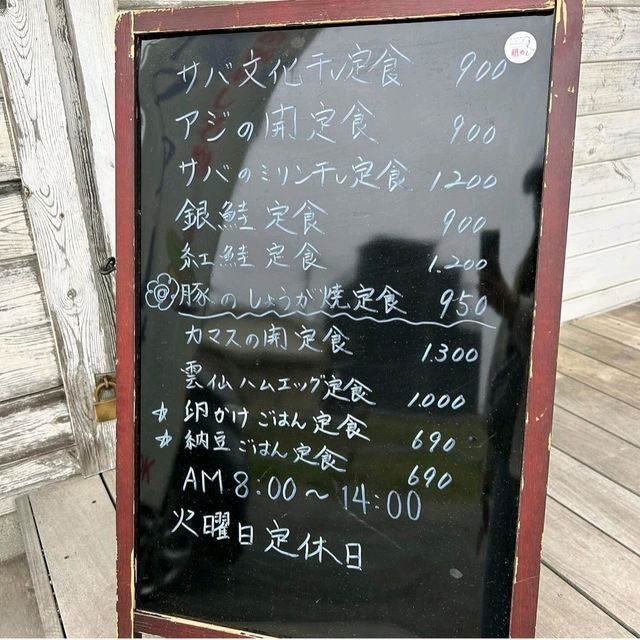 サバ文化干し定食 900
アジの開定食 900
サバのミリン干し定食 1200
銀鮭定食 900
紅鮭定食 1.200
豚のしょうが焼定食 950
カマスの開定食 1.300
雲仙ハムエッグ定食 1.000
☆卵かけごはん定食 690
☆納豆ごはん定食 690
AM 8:00〜14:00
火曜日定休日